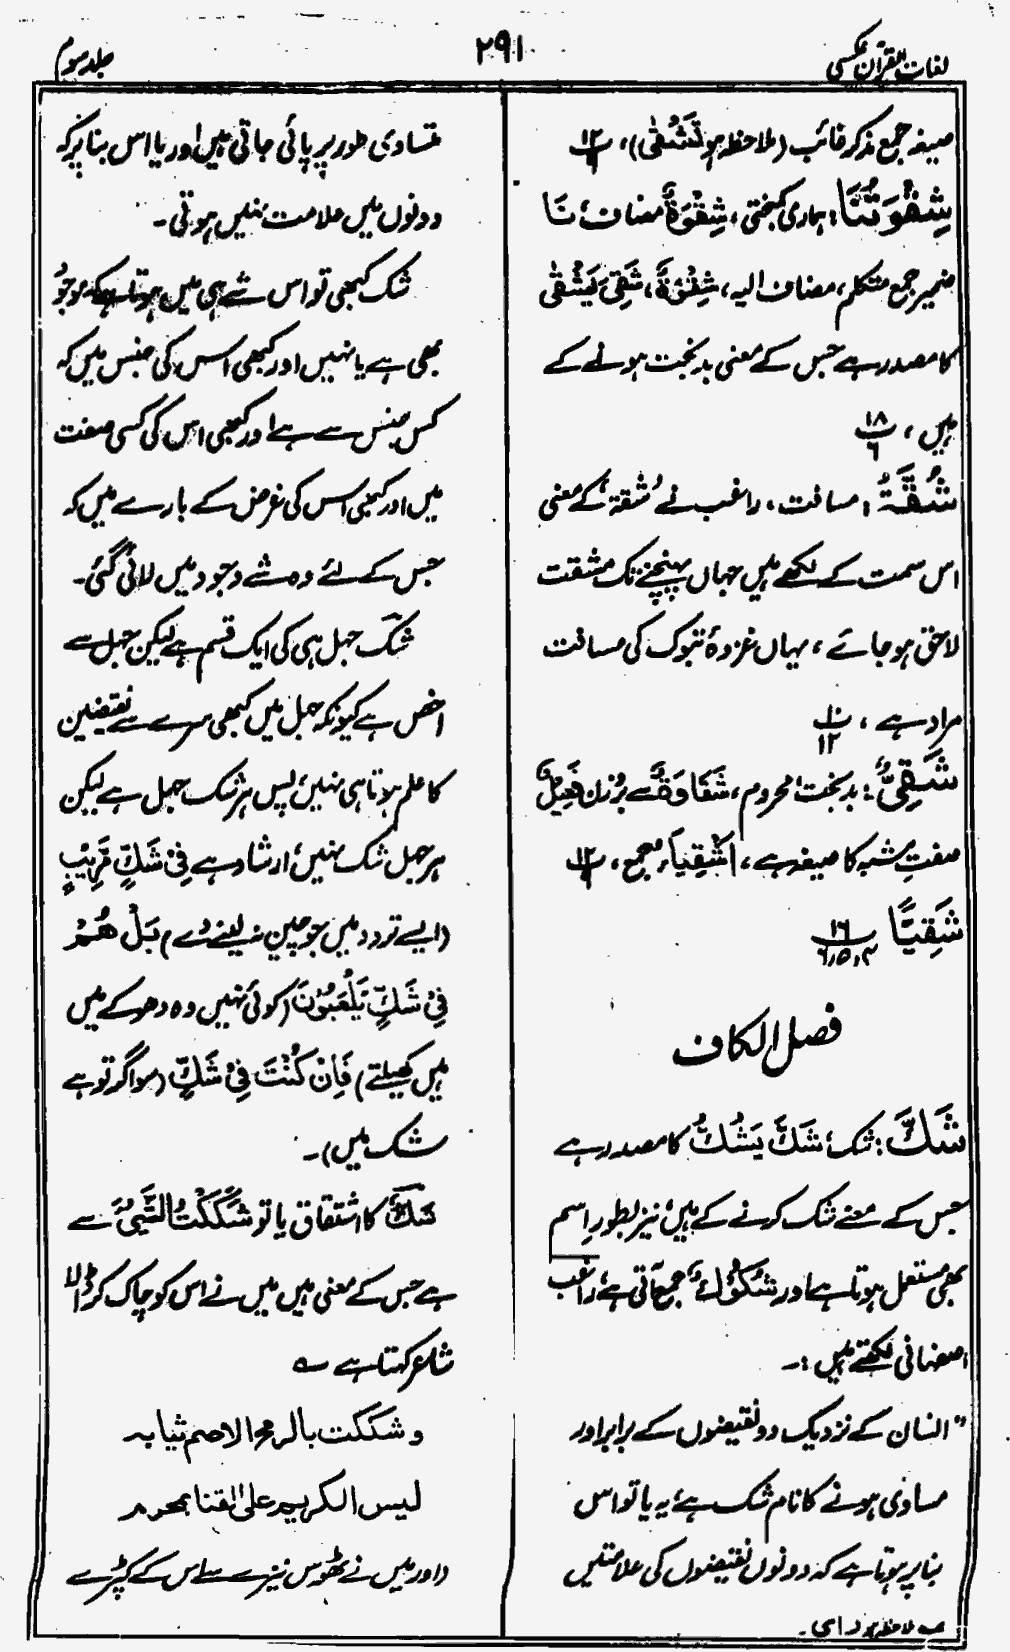 لغات القرآن عکسی
۲۹۱
جلد سوم
صیغہ جمع مذکر غائب (ملاحظہ ہو تَشْقٰی)، پ ۱۲ ۹
شِقْوَتُنَا : ہماری کمبختی، شِقْوَۃٌ مضاف، نَا
ضمیر جمع متکلم، مضاف الیہ، شِقْوَۃٌ، شَقِیَ یَشْقٰی
کا مصدر ہے جس کے معنی بدبخت ہونے کے
ہیں، پ ۱۸ ۶
شُقَّۃُ : مسافت، راغب نے شُقۃ، کے معنی
اس سمت کے لکھے ہیں جہاں پہنچنے تک مشقت
لاحق ہو جائے، یہاں غزوۂ تبوک کی مسافت
مراد ہے، پ ۱۰ ۱۲
شَقِیٌّ : بدبخت، محروم، شَقَاوَۃٌ سے بروزن فَعِیْلٌ
صفتِ مشبہ کا صیغہ ہے، اَشْقِیَاءُ جمع، پ ۱۲ ۹
شَقِیًّا پ ۱۶ ۴،۵،۶
فصل الکاف
شَکَّ : شک، شَکَّ یَشُکُّ کا مصدر ہے
جس کے معنے شک کرنے کے ہیں، نیز بطور اِسم
بھی مستعمل ہوتا ہے اور شُکُوْکٌ جمع آتی ہے، راغب
اصفہانی لکھتے ہیں :۔
"انسان کے نزدیک دو نقیضوں کے برابر اور
مساوی ہونے کا نام شک ہے، یہ یا تو اس
بنا پر ہوتا ہے کہ دونوں نقیضوں کی علامتیں
ملاحظہ ہو
متساوی طور پر پائی جاتی ہیں اور یا اس بنا پر کہ
دونوں میں علامت نہیں ہوتی۔
شک کبھی تو اس شے ہی میں ہوتا ہے کہ موجود
بھی ہے یا نہیں اور کبھی اس کی جنس میں کہ
کس جنس سے ہے اور کبھی اس کی کسی صفت
میں اور کبھی اس کی غرض کے بارے میں کہ
جس کے لئے وہ شے وجود میں لائی گئی۔
شک جہل ہی کی ایک قسم ہے لیکن جہل سے
اخص ہے کیونکہ جہل میں کبھی سرے سے نقیضین
کا علم ہوتا ہی نہیں، پس ہر شک جہل ہے لیکن
ہر جہل شک نہیں، ارشاد ہے فِیْ شَکٍّ مُّرِیْبٍ
(ایسے تردد میں جو چین نہ لینے دے) بَلْ ھُمْ
فِیْ شَکٍّ یَّلْعَبُوْنَ (کوئی نہیں وہ دھوکے میں
ہیں کھیلتے) فَاِنْ کُنْتَ فِیْ شَکٍّ (سو اگر تو ہے
شک میں)۔
شَکٌّ کا اشتقاق یا تو شَکَکْتُ الشَّیْءَ سے
ہے جس کے معنی ہیں میں نے اس کو چاک کر ڈالا
شاعر کہتا ہے ؎
وشککت بالرمح الاصم ثیابہ
لیس الکریم علی القنا بمحرم
(اور میں نے ٹھوس نیزے سے اس کے کپڑے